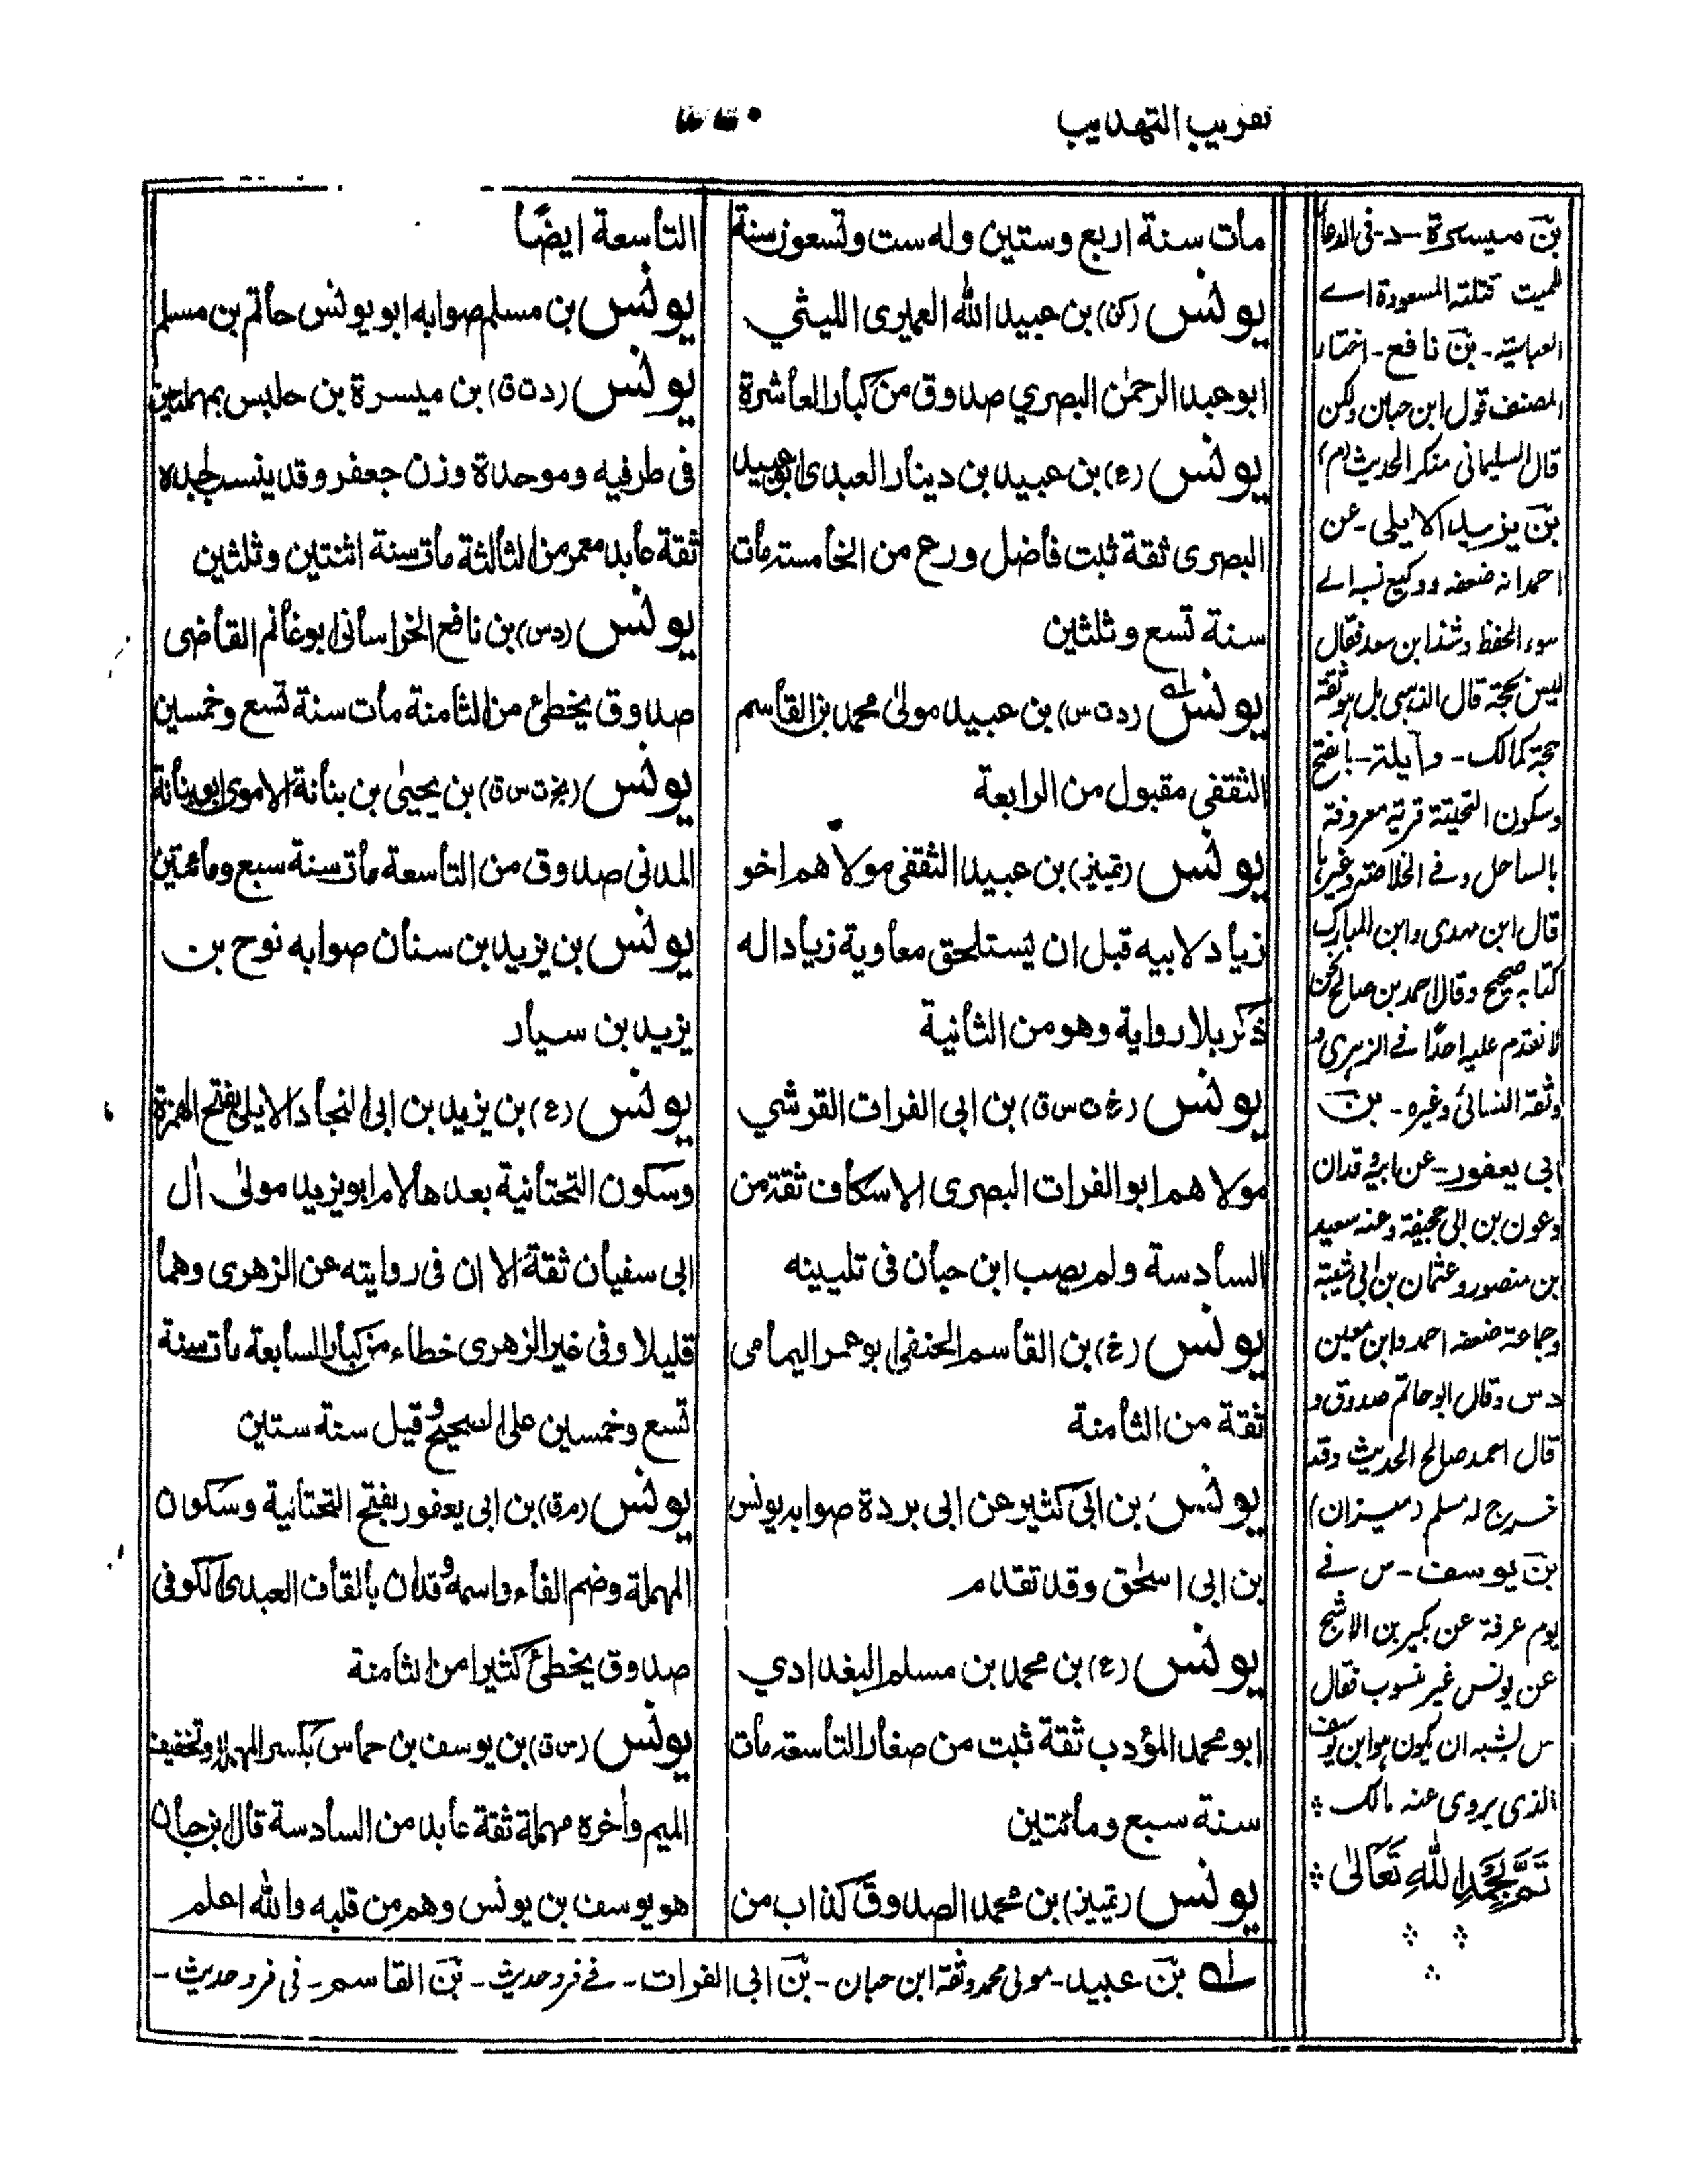 تقريب التهذيب
مات سنة اربع وستين وله ست وتسعون سنة
يونس (كن) بن عبيد الله العميرى الليثي
ابو عبد الرحمٰن البصري صدوق من كبار العاشرة
يونس (ع) بن عبيد بن دينار العبدى ابو عبيد
البصرى ثقة ثبت فاضل ورع من الخامسة مات
سنة تسع وثلثين
يونس (د ت س) بن عبيد مولىٰ محمد بن القاسم
الثقفى مقبول من الرابعة
يونس (تمييز) بن عبيد الثقفى مولاهم اخو
زياد لابيه قبل ان يستلحق معاوية زيادا له
ذكر بلا رواية وهو من الثانية
يونس (غ ت س ق) بن ابى الفرات القرشي
مولاهم ابو الفرات البصرى الاسكاف ثقة من
السادسة ولم يصب ابن حبان فى تليينه
يونس (غ) بن القاسم الحنفى ابو عمر اليمامى
ثقة من الثامنة
يونس بن ابى كثير عن ابى بردة صوابه يونس
بن ابى اسحٰق وقد تقدم
يونس (ع) بن محمد بن مسلم البغدادي
ابو محمد المؤدب ثقة ثبت من صغار التاسعة مات
سنة سبع ومائتين
يونس (تمييز) بن محمد الصدوق كذاب من
التاسعة ايضًا
يونس بن مسلم صوابه ابو يونس حاتم بن مسلم
يونس (د ت ق) بن ميسرة بن حلبس بمهملتين
فى طرفيه وموحدة وزن جعفر وقد ينسب لجده
ثقة عابد معمر من الثالثة مات سنة اثنتين وثلثين
يونس (د س) بن نافع الخراسانى ابو غانم القاضى
صدوق يخطئ من الثامنة مات سنة تسع وخمسين
يونس (بخ ت س ق) بن يحيىٰ بن بنانة الاموى ابو بنانة
المدنى صدوق من التاسعة مات سنة سبع ومائتين
يونس بن يزيد بن سنان صوابه نوح بن
يزيد بن سيار
يونس (ع) بن يزيد بن ابى النجاد الايلى بفتح الهمزة
وسكون التحتانية بعدها لام ابو يزيد مولىٰ اٰل
ابى سفيان ثقة الا ان فى روايته عن الزهرى وهما
قليلا وفى غير الزهرى خطاء من كبار السابعة مات سنة
تسع وخمسين على الصحيح وقيل سنة ستين
يونس (م ق) بن ابى يعفور بفتح التحتانية وسكون
المهملة وضم الفاء واسمه وقدان بالقاف العبدى الكوفى
صدوق يخطئ كثيرا من الثامنة
يونس (س ق) بن يوسف بن حماس بكسر المهملة وتخفيف
الميم واٰخره مهملة ثقة عابد من السادسة قال ابن حبان
هو يوسف بن يونس ووهم من قلبه والله اعلم
بن ميسرة - د - فى الدعاء
للميت قتلته المسعودة اے
العباسية - بن نافع - اختار
المصنف قول ابن حبان ولكن
قال السليمانى منكر الحديث (م)
بن يزيد الايلى - عن
احمد انه ضعفه ووكيع نسبه الے
سوء الحفظ وشذ ابن سعد فقال
ليس بحجة قال الذهبى بل هو ثقة
حجة كمالك - وايلة - بالفتح
وسكون التحتية قرية معروفة
بالساحل وفے الخلاصة وغيرها
قال ابن مهدى وابن المبارك
كتابه صحيح وقال احمد بن صالح نحن
لا نقدم عليه احدًا فے الزهرى و
وثقه النسائى وغيره - بن
ابى يعفور - عن ابيه وقدان
وعون بن ابى جحيفة وعنه سعيد
بن منصور وعثمان بن ابى شيبة
وجماعة ضعفه احمد وابن معين
د س وقال ابو حاتم صدوق و
قال احمد صالح الحديث وقد
خرج له مسلم (ميزان)
بن يوسف - س فے
يوم عرفة عن بكير بن الاشج
عن يونس غير منسوب فقال
س يشبه ان يكون هو ابن يوسف
الذى يروى عنه مالك
تَمَّ بِحَمْدِ اللهِ تَعَالىٰ
له بن عبيد - مولى محمد وثقه ابن حبان - بن ابى الفرات - فے فرد حديث - بن القاسم - فى فرد حديث -